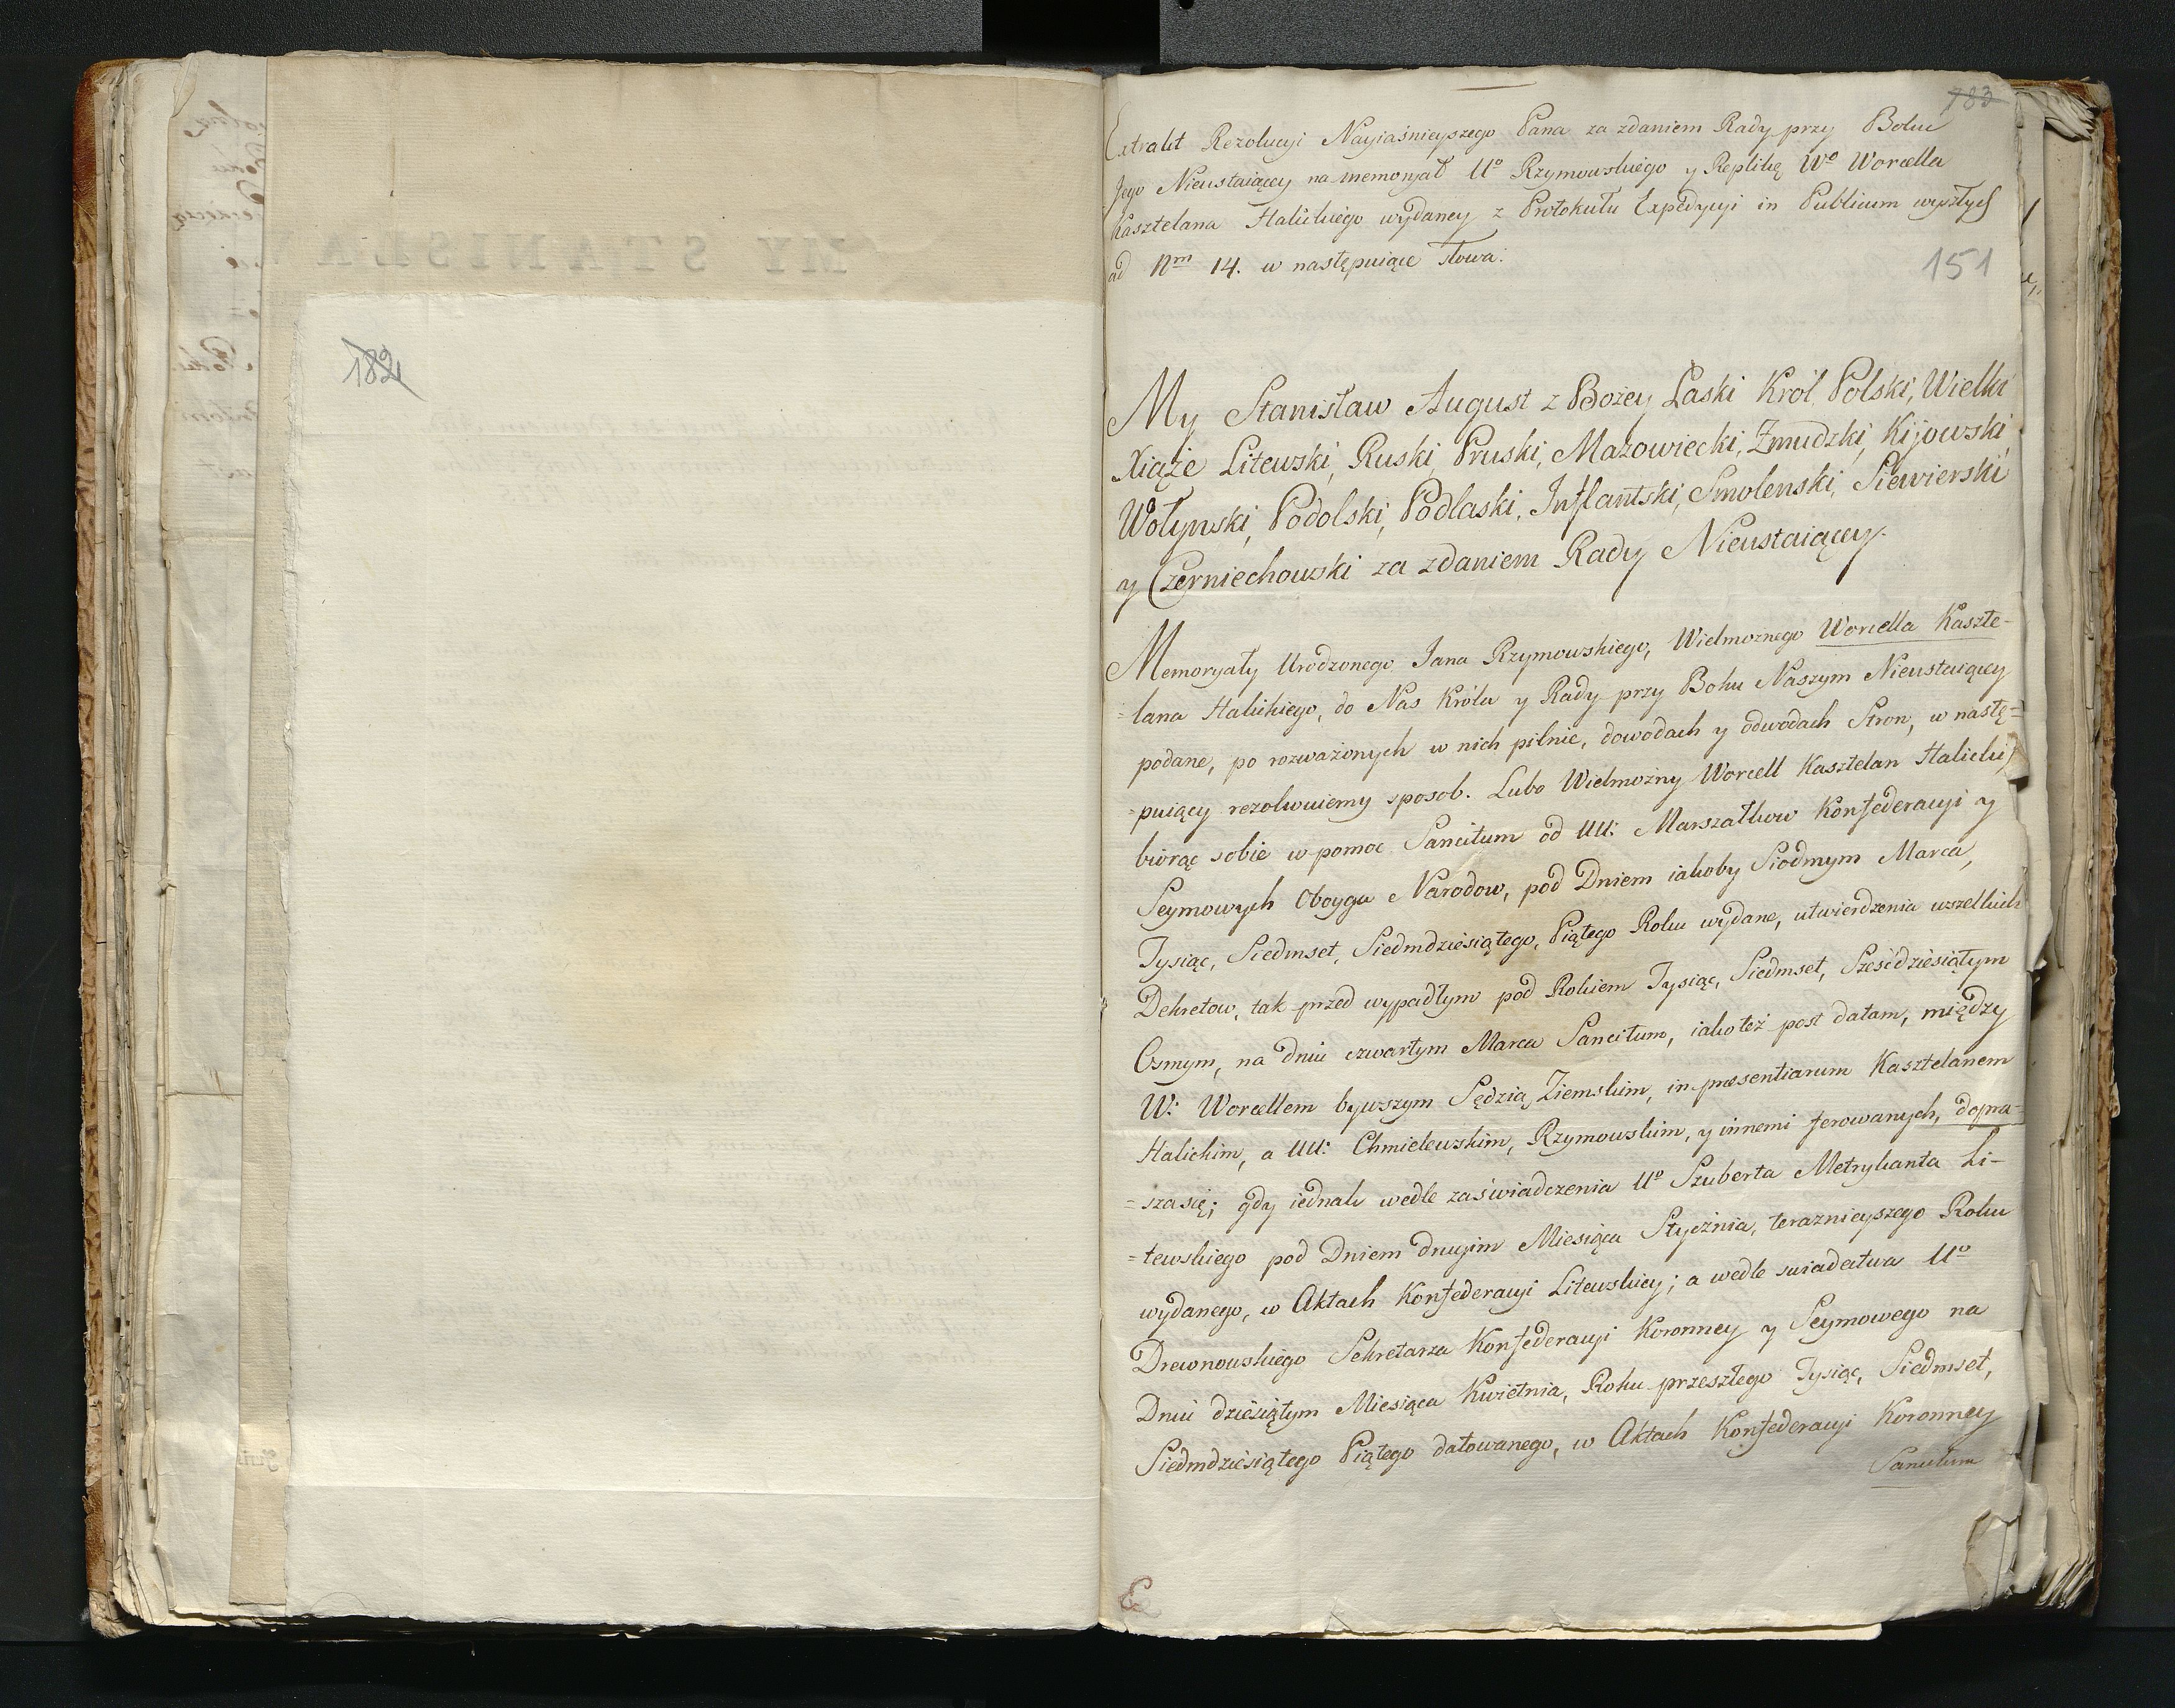 182
183
Extrakt Rezolucyi Nayiaśnieyszego Pana za zdaniem Rady przy Boku
Jego Nieustaiącey na memoryał Uº Rzymowskiego y Replikę Wº Worcella
Kasztelana Halickiego wydaney z Protokułu Expedycyi in Publicum wyszłych
ad Nm 14. w następuiące słowa:
151
My Stanisław August z Bożey Łaski Król Polski, Wielki
Xiąże Litewski, Ruski, Pruski, Mazowiecki, Żmudzki, Kijowski
Wołynski, Podolski, Podlaski, Inflantski, Smolenski, Siewierski
y Czerniechowski za zdaniem Rady Nieustaiącey.
Memoryały Urodzonego Jana Rzymowskiego, Wielmożnego Worcella Kaszte-
=lana Halickiego, do Nas Króla y Rady przy Boku Naszym Nieustaiącey
podane, po rozważonych w nich pilnie, dowodach y odwodach Stron, w nastę=
=puiący rezolwuiemy sposob. Lubo Wielmożny Worcell Kasztelan Halicki,
biorąc sobie w pomoc Sancitum od UU: Marszałkow Konfederacyi y
Seymowych Oboyga Narodow, pod Dniem iakoby Siodmym Marca,
Tysiąc, Siedmset, Siedmdziesiątego, Piątego Roku wydane, utwierdzenia wszelkich
Dekretow, tak przed wypadłym pod Rokiem Tysiąc, Siedmset, Sześćdziesiątym
Osmym, na dniu czwartym Marca Sancitum, iako też post datam, między
W: Worcellem bywszym Sędzią Ziemskim, in præsentiarum Kasztelanem
Halickim, a UU: Chmielewskim, Rzymowskim, y innemi ferowanych, dopra-
=sza się; gdy iednak wedle zaświadczenia Uº Szuberta Metrykanta Li-
=tewskiego pod Dniem drugim Miesiąca Stycznia, teraznieyszego Roku
wydanego, w Aktach Konfederacyi Litewskiey; a wedle swiadectwa Uº
Drewnowskiego Sekretarza Konfederacyi Koronney y Seymowego na
Dniu dziesiątym Miesiąca Kwietnia, Roku przeszłego Tysiąc, Siedmset,
Siedmdziesiątego Piątego datowanego, w Aktach Konfederacyi Koronney
Sancitum